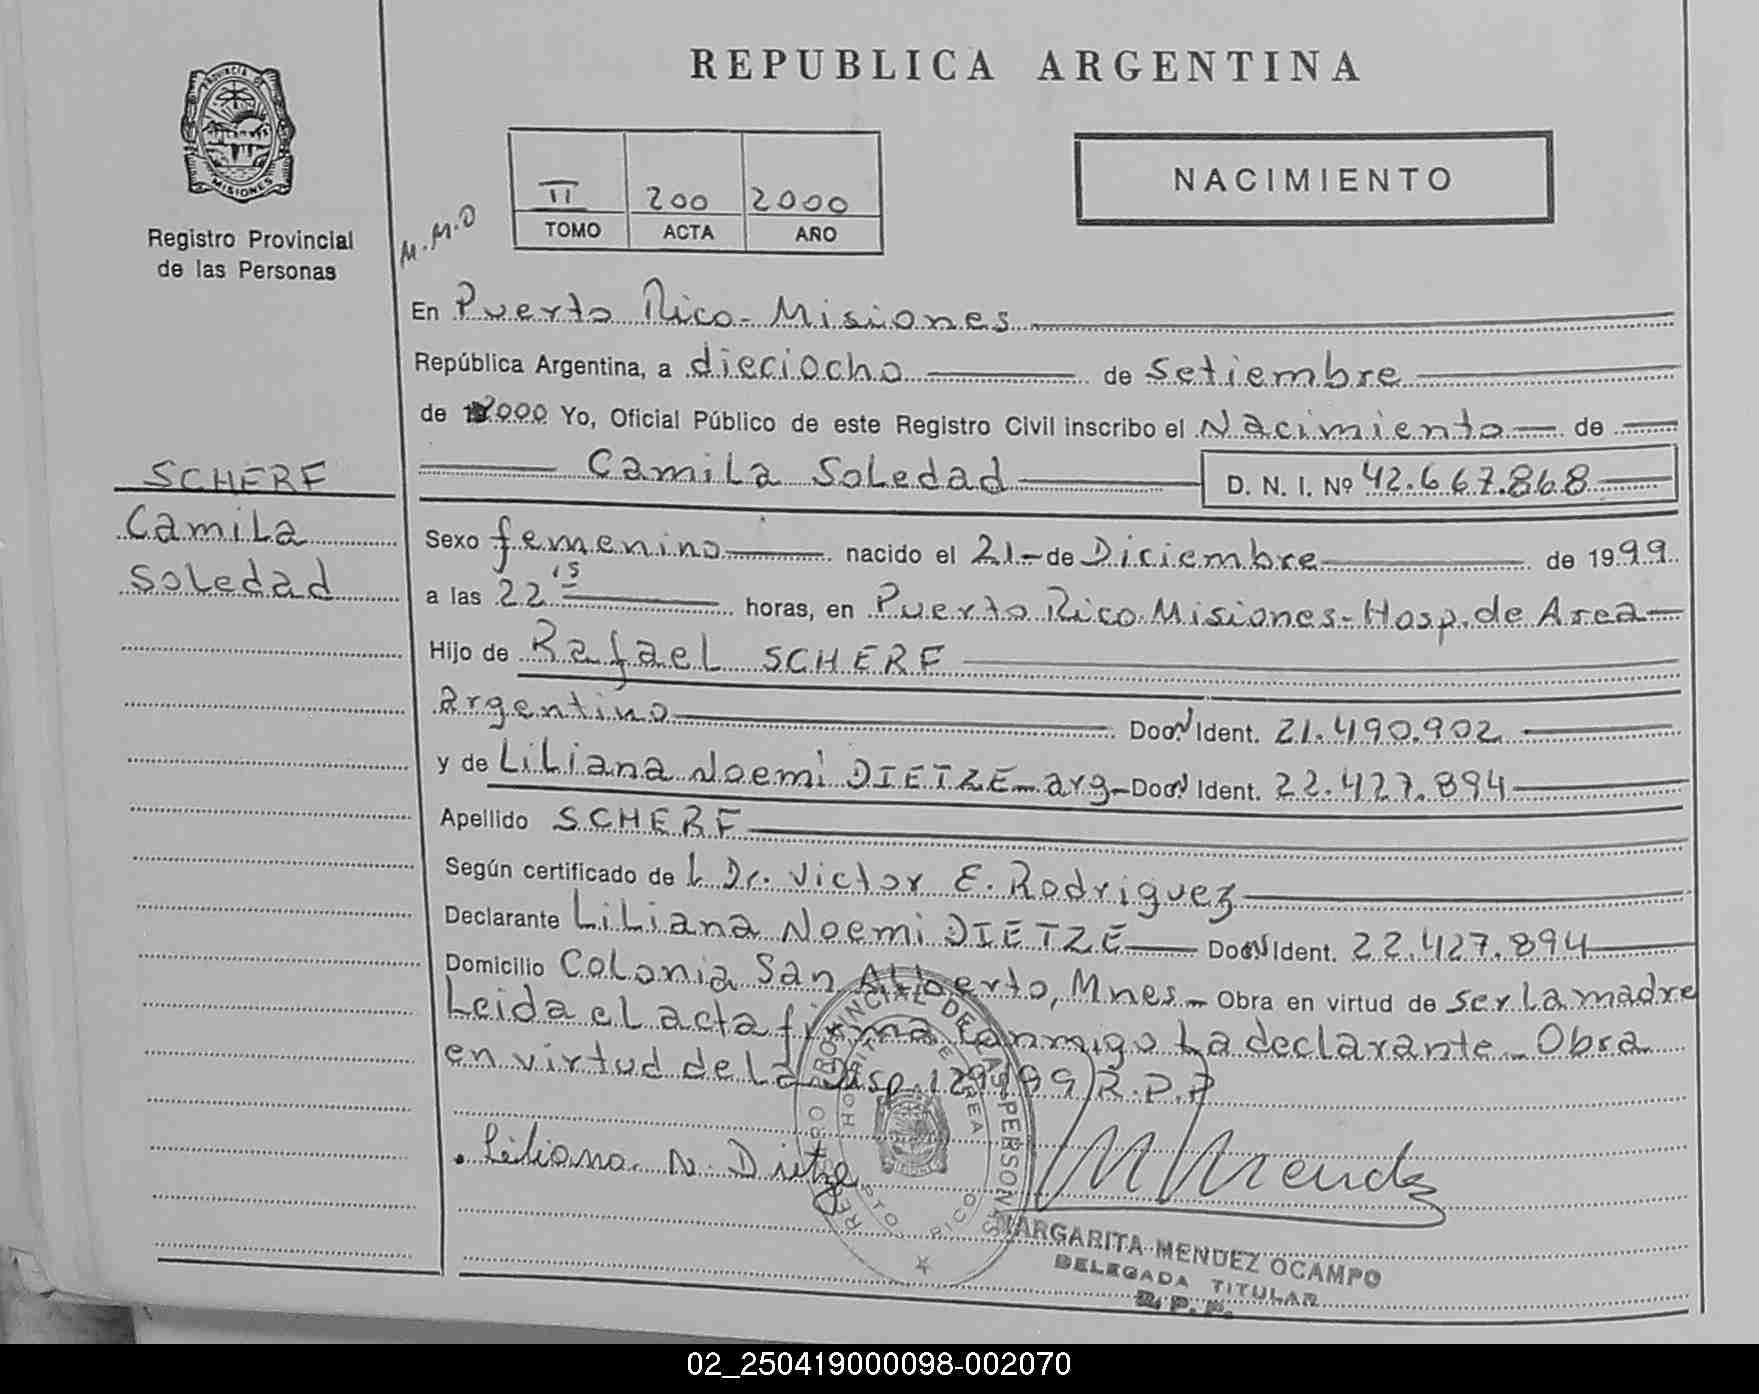 REPUBLICA ARGENTINA
PROVINCIA DE
MISIONES
Registro Provincial
de las Personas
M.M.O
II 200 2000
TOMO ACTA AÑO
NACIMIENTO
SCHERF
Camila
Soledad
En Puerto Rico - Misiones
República Argentina, a dieciocho de Setiembre
de 2000 Yo, Oficial Público de este Registro Civil inscribo el Nacimiento de
Camila Soledad D. N. I. Nº 42.667.868
Sexo femenino nacido el 21 - de Diciembre de 1999
a las 22 15 horas, en Puerto Rico Misiones - Hosp. de Area
Hijo de Rafael SCHERF
argentino Doc. N Ident. 21.490.902
y de Liliana Noemi DIETZE - arg - Doc. N Ident. 22.427.894
Apellido SCHERF
Según certificado de L Dr. Victor E. Rodriguez
Declarante Liliana Noemi DIETZE Doc. N Ident. 22.427.894
Domicilio Colonia San Alberto, Mnes. - Obra en virtud de ser la madre
Leida el acta firma conmigo La declarante - Obra
en virtud de la Disp. 129/99 R.P.P
Liliana N. Dietze
M Mendez
REGISTRO PROVINCIAL DE LAS PERSONAS
PTO. RICO
MARGARITA MENDEZ OCAMPO
DELEGADA TITULAR
R. P. P.
02_250419000098-002070